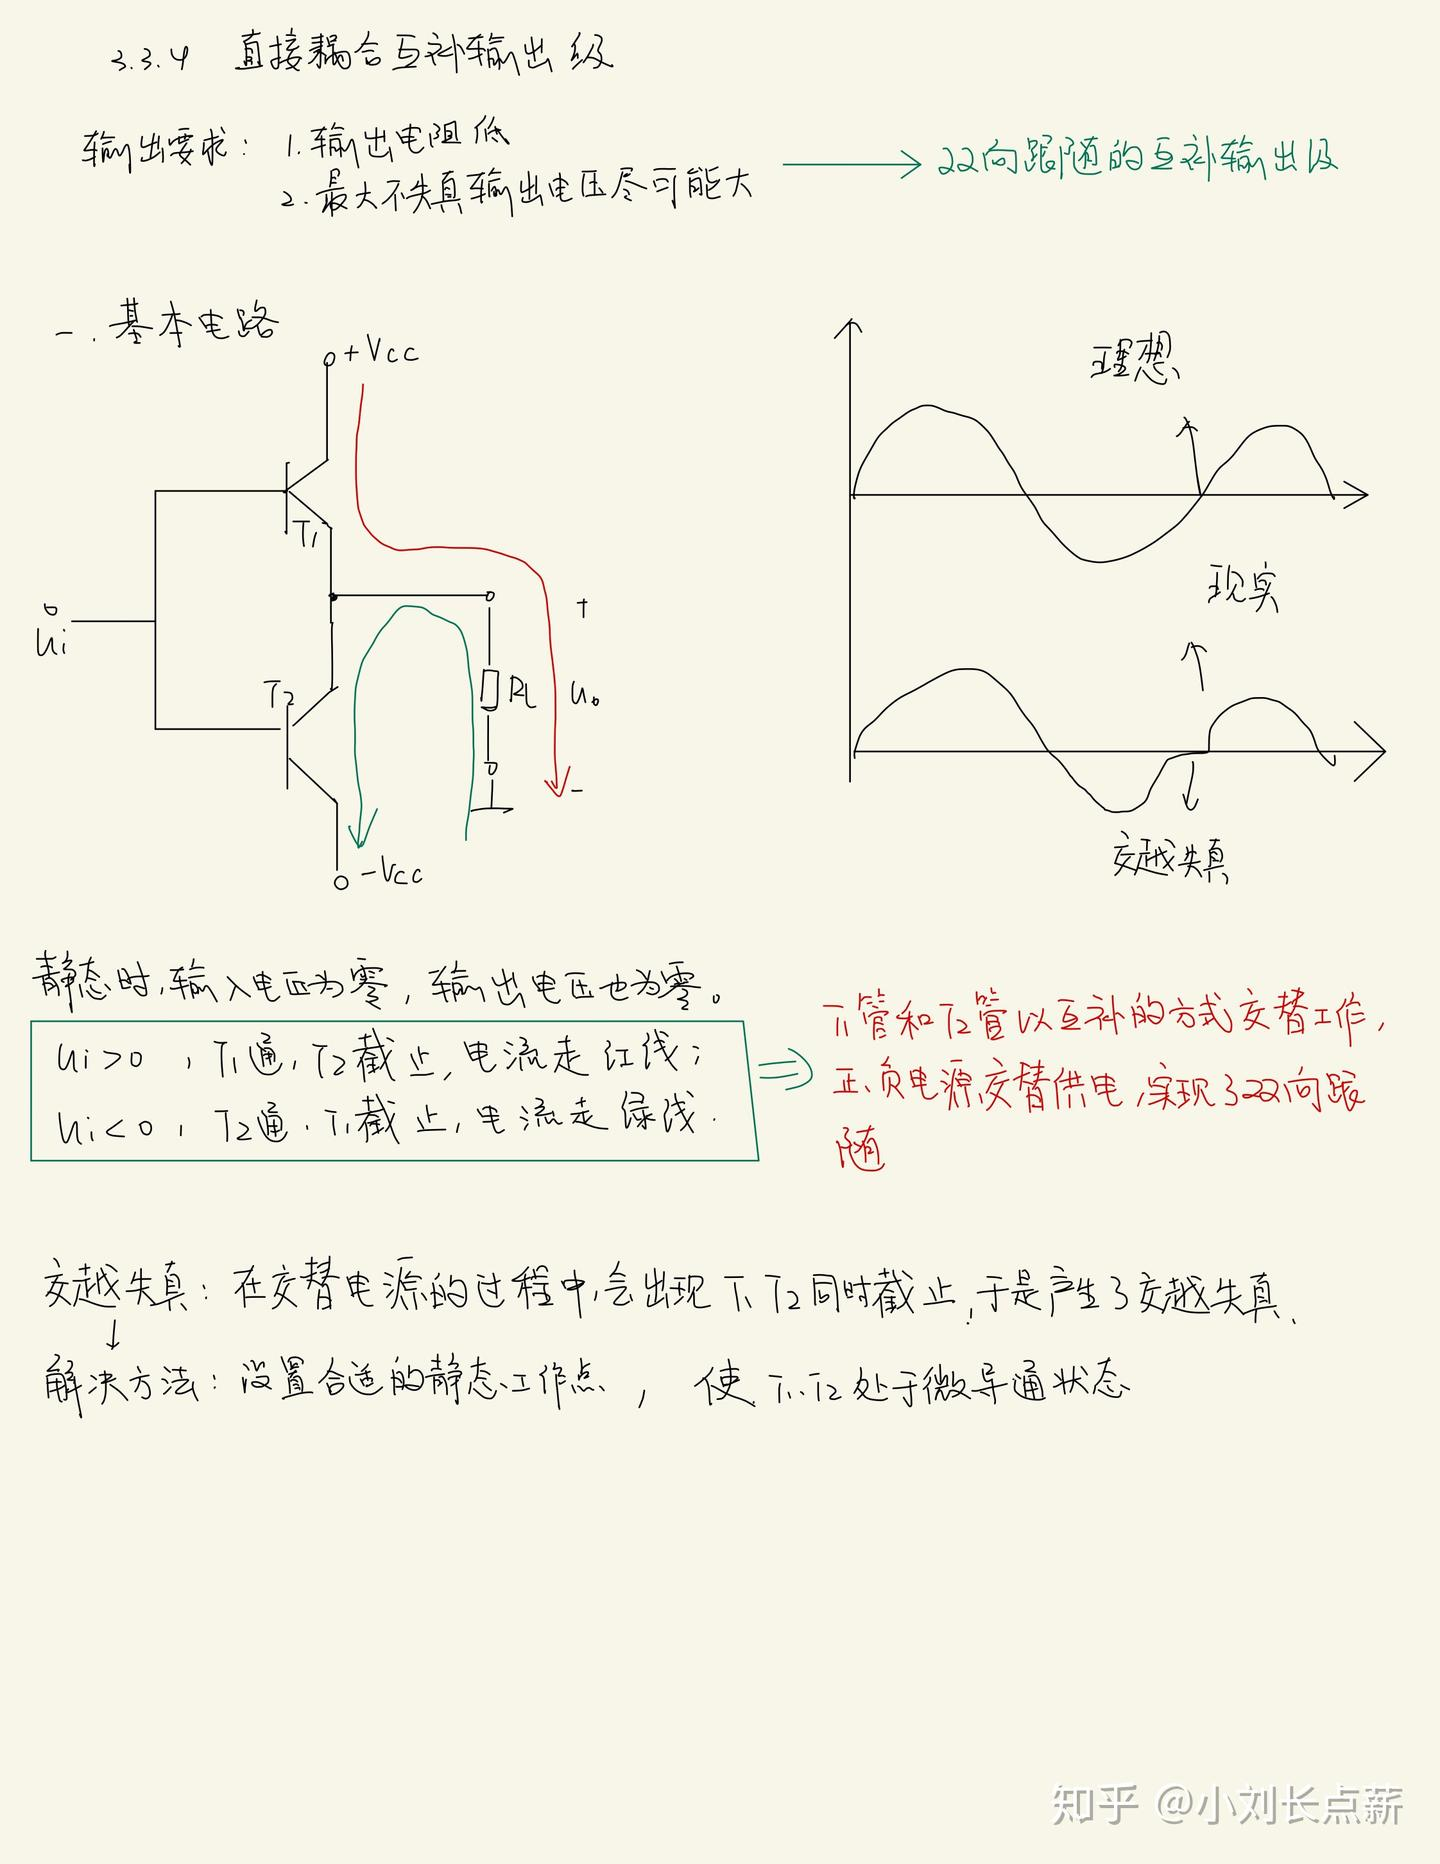 3.3.4 直接耦合互补输出级
输出要求： 1.输出电阻低
2.最大不失真输出电压尽可能大
双向跟随的互补输出级
一.基本电路
+Vcc
理想
T1
现实
ui
T2
RL
+
uo
-
-Vcc
交越失真
静态时,输入电压为零,输出电压也为零。
ui>0，T1通,T2截止,电流走红线；
ui<0，T2通,T1截止,电流走绿线.
T1管和T2管以互补的方式交替工作,
正、负电源交替供电,实现了双向跟
随
交越失真：在交替电源的过程中,会出现T1、T2同时截止,于是产生了交越失真、
解决方法：设置合适的静态工作点， 使T1、T2处于微导通状态
知乎 @小刘长点薪